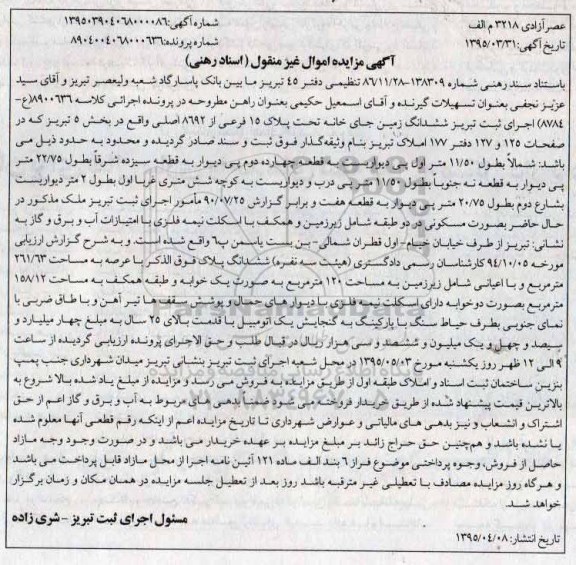 عصر آزادی ۳۲۱۸ م الف
شماره آگهی: ۱۳۹۵۰۳۹۰۴۰۶۸۰۰۰۰۸۶
تاریخ آگهی: ۱۳۹۵/۰۳/۳۱
شماره پرونده: ۸۹۰۴۰۰۴۰۶۸۰۰۰۶۳۶
آگهی مزایده اموال غیر منقول (اسناد رهنی)
باستناد سند رهنی شماره ۱۳۸۳۰۹-۸۶/۱۱/۲۸ تنظیمی دفتر ۴۵ تبریز ما بین بانک پاسارگاد شعبه ولیعصر تبریز و آقای سید
عزیز نجفی بعنوان تسهیلات گیرنده و آقای اسمعیل حکیمی بعنوان راهن مطروحه در پرونده اجرائی کلاسه ۸۹۰۰۶۳۶(ع-
۸۷۸۴) اجرای ثبت تبریز ششدانگ زمین جای خانه تحت پلاک ۱۵ فرعی از ۸۶۹۲ اصلی واقع در بخش ۵ تبریز که در
صفحات ۱۲۵ و ۱۲۷ دفتر ۱۷۷ املاک تبریز بنام وثیقه گذار فوق ثبت و سند صادر گردیده و محدود به حدود ذیل می
باشد: شمالاً بطول ۱۱/۵۰ متر اول پی دیواریست به قطعه چهارده دوم پی دیوار به قطعه سیزده شرقاً بطول ۲۲/۷۵ متر
پی دیوار به قطعه نه جنوباً بطول ۱۱/۵۰ متر پی درب و دیواریست به کوچه شش متری غربا اول بطول ۲ متر دیواریست
بشارع دوم بطول ۲۰/۷۵ متر پی دیوار به قطعه هفت و برابر گزارش ۹۰/۰۷/۲۵ مأمور اجرای ثبت تبریز ملک مذکور در
حال حاضر بصورت مسکونی در دو طبقه شامل زیرزمین و همکف با اسکلت نیمه فلزی با امتیازات آب و برق و گاز به
نشانی: تبریز از طرف خیابان خیام-اول قطران شمالی- بن بست یاسمن پ۶ واقع شده است. و به شرح گزارش ارزیابی
مورخه ۹۴/۱۰/۰۵ کارشناسان رسمی دادگستری (هیئت سه نفره) ششدانگ پلاک فوق الذکر با عرصه به مساحت ۲۶۱/۶۳
مترمربع و با اعیانی شامل زیرزمین به مساحت ۱۲۰ مترمربع به صورت یک خوابه و طبقه همکف به مساحت ۱۵۸/۱۲
مترمربع بصورت دوخوابه دارای اسکلت نیمه فلزی با دیوار های حمال و پوشش سقف ها تیر آهن و با طاق ضربی با
نمای جنوبی بطرف حیاط سنگ با پارکینگ به گنجایش یک اتومبیل با قدمت بالای ۲۵ سال به مبلغ چهار میلیارد و
سیصد و چهل و یک میلیون و ششصد و سی هزار ریال در قبال طلب و حق الاجرای پرونده ارزیابی گردیده از ساعت
۹ الی ۱۲ ظهر روز یکشنبه مورخ ۱۳۹۵/۰۵/۰۳ در محل شعبه اجرای ثبت تبریز بنشانی تبریز میدان شهرداری جنب پمپ
بنزین ساختمان ثبت اسناد و املاک طبقه اول از طریق مزایده به فروش می رسد و مزایده از مبلغ یاد شده بالا شروع به
بالاترین قیمت پیشنهاد شده از طریق خریدار فروخته می شود و ضمنا بدهی های مربوط به آب و برق و گاز اعم از حق
اشتراک و انشعاب و نیز بدهی های مالیاتی و عوارض شهرداری تا تاریخ مزایده اعم از اینکه رقم قطعی آنها معلوم شده
یا نشده باشد و همچنین حق حراج زائد بر مبلغ مزایده بر عهده خریدار می باشد و در صورت وجود وجه مازاد
حاصل از فروش، وجوه پرداختی موضوع فراز ۶ بند الف ماده ۱۲۱ آئین نامه اجرا از محل مازاد قابل پرداخت می باشد
و هرگاه روز مزایده مصادف با تعطیلی غیر مترقبه باشد روز بعد از تعطیل جلسه مزایده در همان مکان و زمان برگزار
خواهد شد.
مسئول اجرای ثبت تبریز - شری زاده
تاریخ انتشار: ۱۳۹۵/۰۴/۰۸